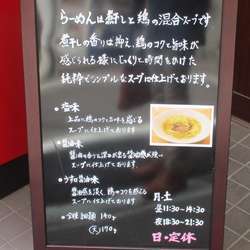 らーめんは煮干しと鶏の混合スープです
煮干しの香りは抑え、鶏のコクと旨味が
感じられる様にじっくり時間をかけた
純粋でシンプルなスープに仕上げております。
・塩味
上品に鶏のコクと旨味を感じる
スープに仕上げております
・醤油味
スープに仕上げております
・うす口醤油味
醤油感も淡く鶏のコクも感じる
スープに仕上げております
170g
月-土
昼11:30-14:30
夜18:30-21:30
日・定休